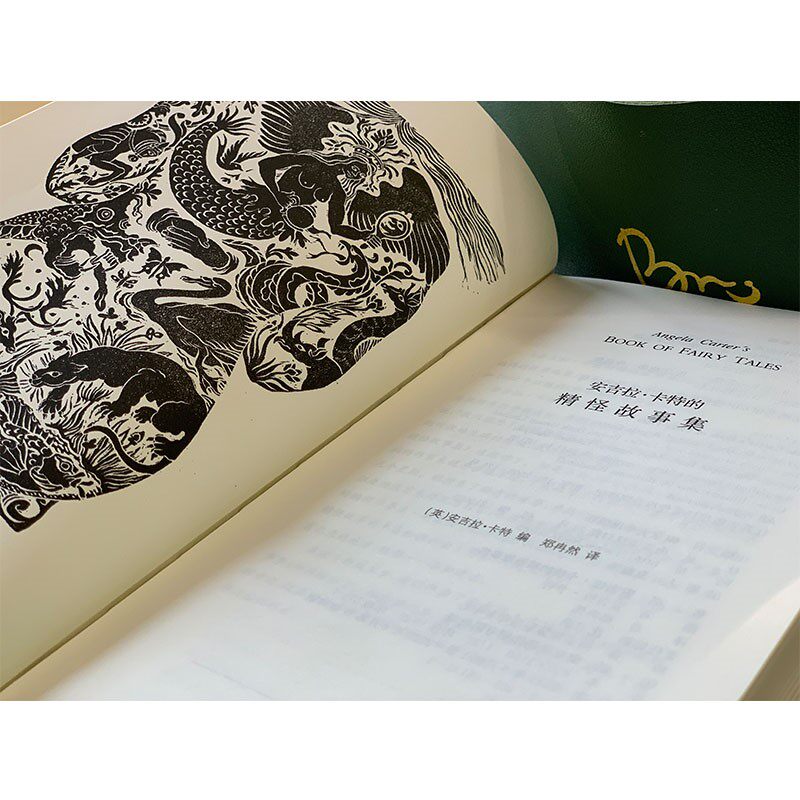 Angela Carter's
BOOK OF FAIRY TALES
安吉拉·卡特的
精怪故事集
(英)安吉拉·卡特 编 郑冉然 译